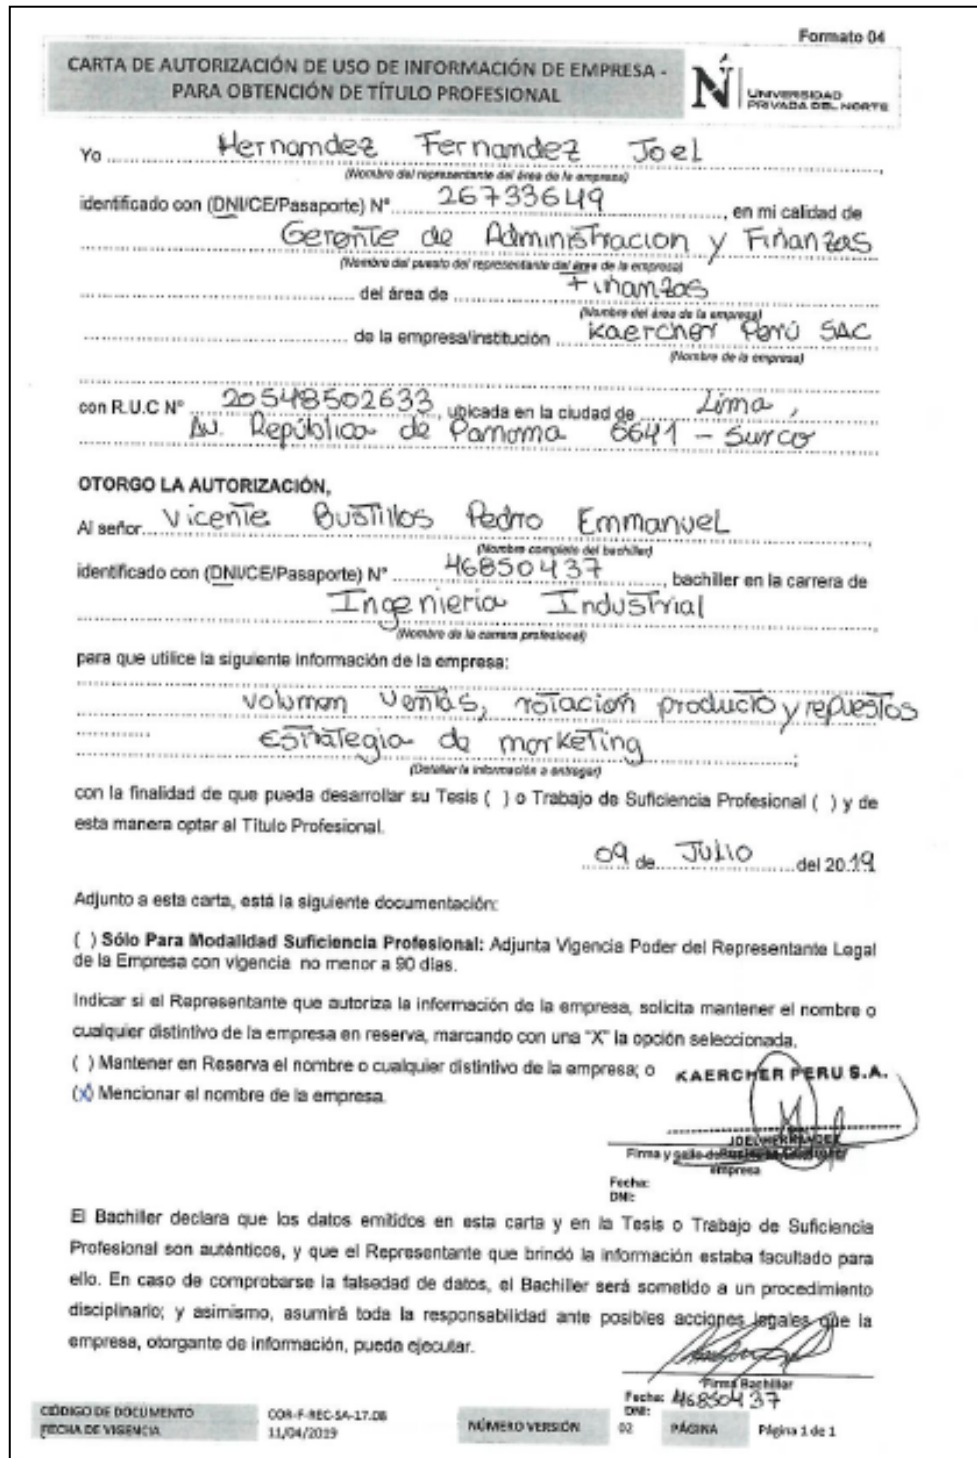 Formato 04
CARTA DE AUTORIZACIÓN DE USO DE INFORMACIÓN DE EMPRESA -
PARA OBTENCIÓN DE TÍTULO PROFESIONAL
N UNIVERSIDAD
PRIVADA DEL NORTE
Yo Hernandez Fernandez Joel
(Nombre del representante del área de la empresa)
identificado con (DNI/CE/Pasaporte) N° 26733649, en mi calidad de
Gerente de Administracion y Finanzas
(Nombre del puesto del representante del área de la empresa)
del área de Finanzas
(Nombre del área de la empresa)
de la empresa/institución Kaercher Perú SAC
(Nombre de la empresa)
con R.U.C N° 20548502633, ubicada en la ciudad de Lima,
Av. República de Panama 6641 - Surco
OTORGO LA AUTORIZACIÓN,
Al señor Vicente Bustillos Pedro Emmanuel
(Nombre completo del bachiller)
identificado con (DNI/CE/Pasaporte) N° 46850437, bachiller en la carrera de
Ingenieria Industrial
(Nombre de la carrera profesional)
para que utilice la siguiente información de la empresa:
volumen ventas, rotación producto y repuestos
Estrategia de marketing
(Detallar la información a entregar)
con la finalidad de que pueda desarrollar su Tesis ( ) o Trabajo de Suficiencia Profesional ( ) y de
esta manera optar al Título Profesional.
09 de Julio del 2019
Adjunto a esta carta, está la siguiente documentación:
( ) Sólo Para Modalidad Suficiencia Profesional: Adjunta Vigencia Poder del Representante Legal
de la Empresa con vigencia no menor a 90 días.
Indicar si el Representante que autoriza la información de la empresa, solicita mantener el nombre o
cualquier distintivo de la empresa en reserva, marcando con una "X" la opción seleccionada.
( ) Mantener en Reserva el nombre o cualquier distintivo de la empresa; o
KAERCHER PERU S.A.
(x) Mencionar el nombre de la empresa.
JOEL HERNANDEZ
Firma y sello de
empresa
Fecha:
DNI:
El Bachiller declara que los datos emitidos en esta carta y en la Tesis o Trabajo de Suficiencia
Profesional son auténticos, y que el Representante que brindó la información estaba facultado para
ello. En caso de comprobarse la falsedad de datos, el Bachiller será sometido a un procedimiento
disciplinario; y asimismo, asumirá toda la responsabilidad ante posibles acciones legales que la
empresa, otorgante de información, pueda ejecutar.
Firma Bachiller
Fecha: 46850437
DNI:
CÓDIGO DE DOCUMENTO COR-F-REC-SA-17.08 NÚMERO VERSIÓN 02 PÁGINA Página 1 de 1
FECHA DE VIGENCIA 11/04/2019